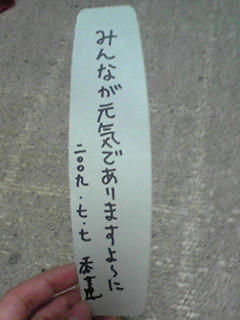 みんなが元気でありますよ〜に
二〇〇九．七．七